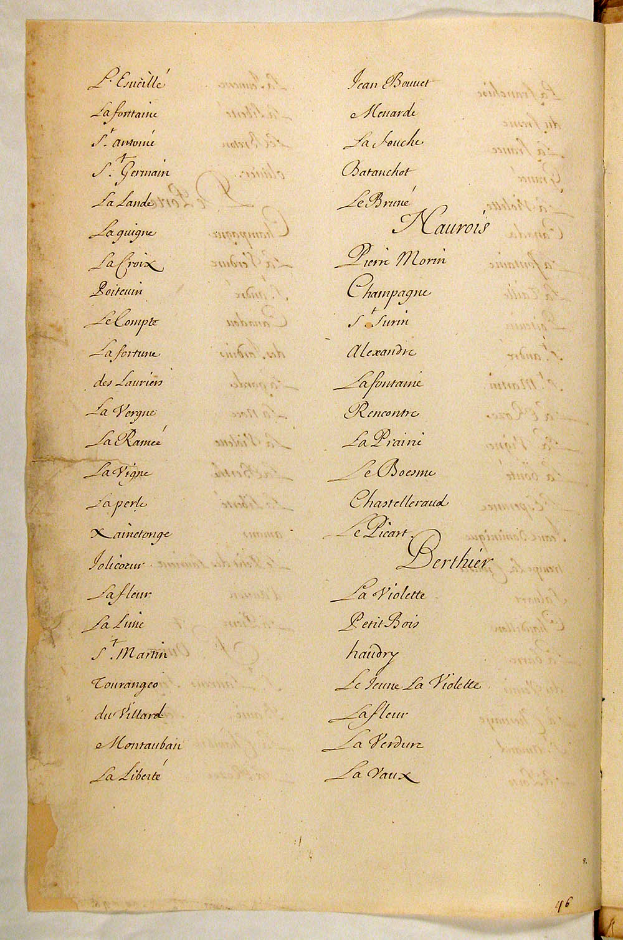 L'Eueillé
Lafontaine
St. antoine
St. Germain
La Lande
Laguigne
La Croix
Poiteuin
Le Compte
La fortune
des Lauriers
La Vergne
La Rameé
La Vigne
La perle
Xainctonge
Jolicoeur
La fleur
La Lune
St. Martin
Tourangeo
du Villard
Montauban
La Liberté
Jean Bouuet
Menarde
La Souche
Batanchot
Le Bruné
Naurois
Pierre Morin
Champagne
St. Surin
Alexandre
Lafontaine
Rencontre
La Prairie
Le Boesme
Chastelleraud
Le Picart
Berthier
La Violette
Petit Bois
haudry
Le Jeune La Violette
La fleur
La Verdure
La Vaux
46